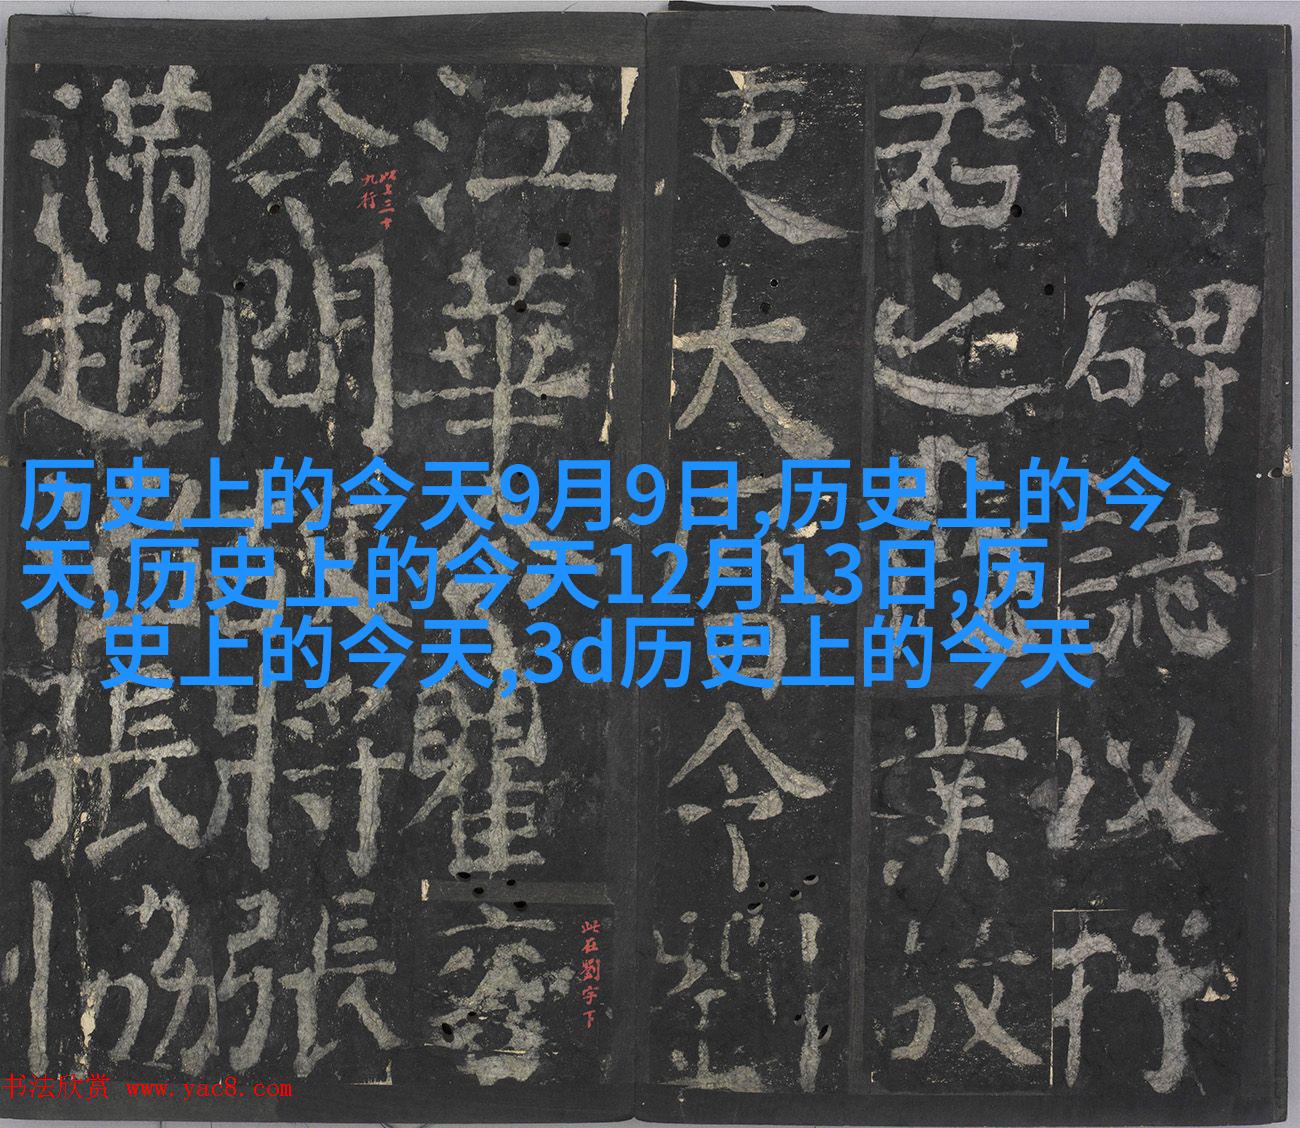 历史上的今天9月9日,历史上的今
天,历史上的今天12月13日,历
史上的今天,3d历史上的今天
作碑誌以
君之業
吏大令劉
江華瞿
令閻將張
滿趙張協
九行
此在劉字下
书法欣赏 www.yac8.com